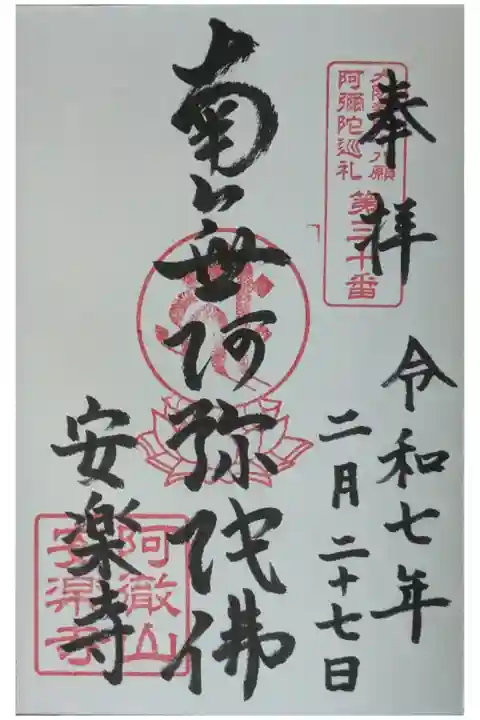 奉拝
令和七年
二月二十七日
阿彌陀巡礼
第三十番
南無阿弥陀佛
安楽寺
阿徹山
安楽寺